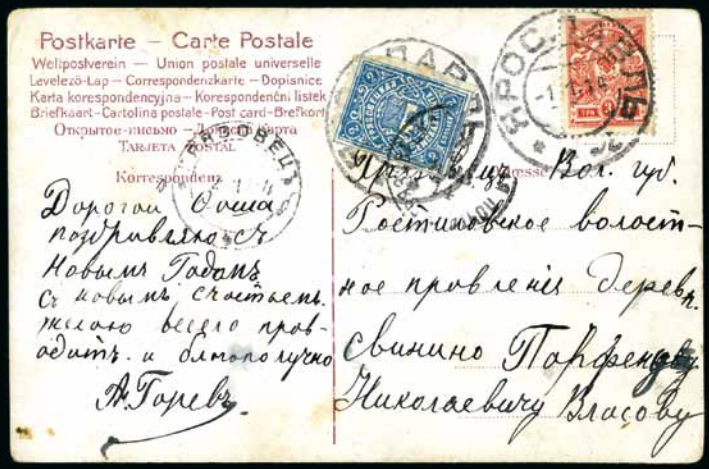 Postkarte — Carte Postale
Weltpostverein — Union postale universelle
Levelező-Lap — Correspondenzkarte — Dopisnice
Karta korespondencyjna — Korespondenční lístek
Briefkaart — Cartolina postale — Post card — Brefkort
Открытое письмо — Дописна карта
TARJETA POSTAL
Korrespondenz
Adresse
ЯРОСЛАВЛЬ
ТРИ 3
ГРЯЗОВЕЦЪ
Дорогой
поздравляю съ
Новымъ Годомъ
съ новымъ счастьемъ.
желаю весело пров-
одить. и благополучно
А. Горевъ
Грязовецъ Вол. губ.
Ростиловское волост-
ное провление дерев.
свинино Парфену
Николаевичу Власову